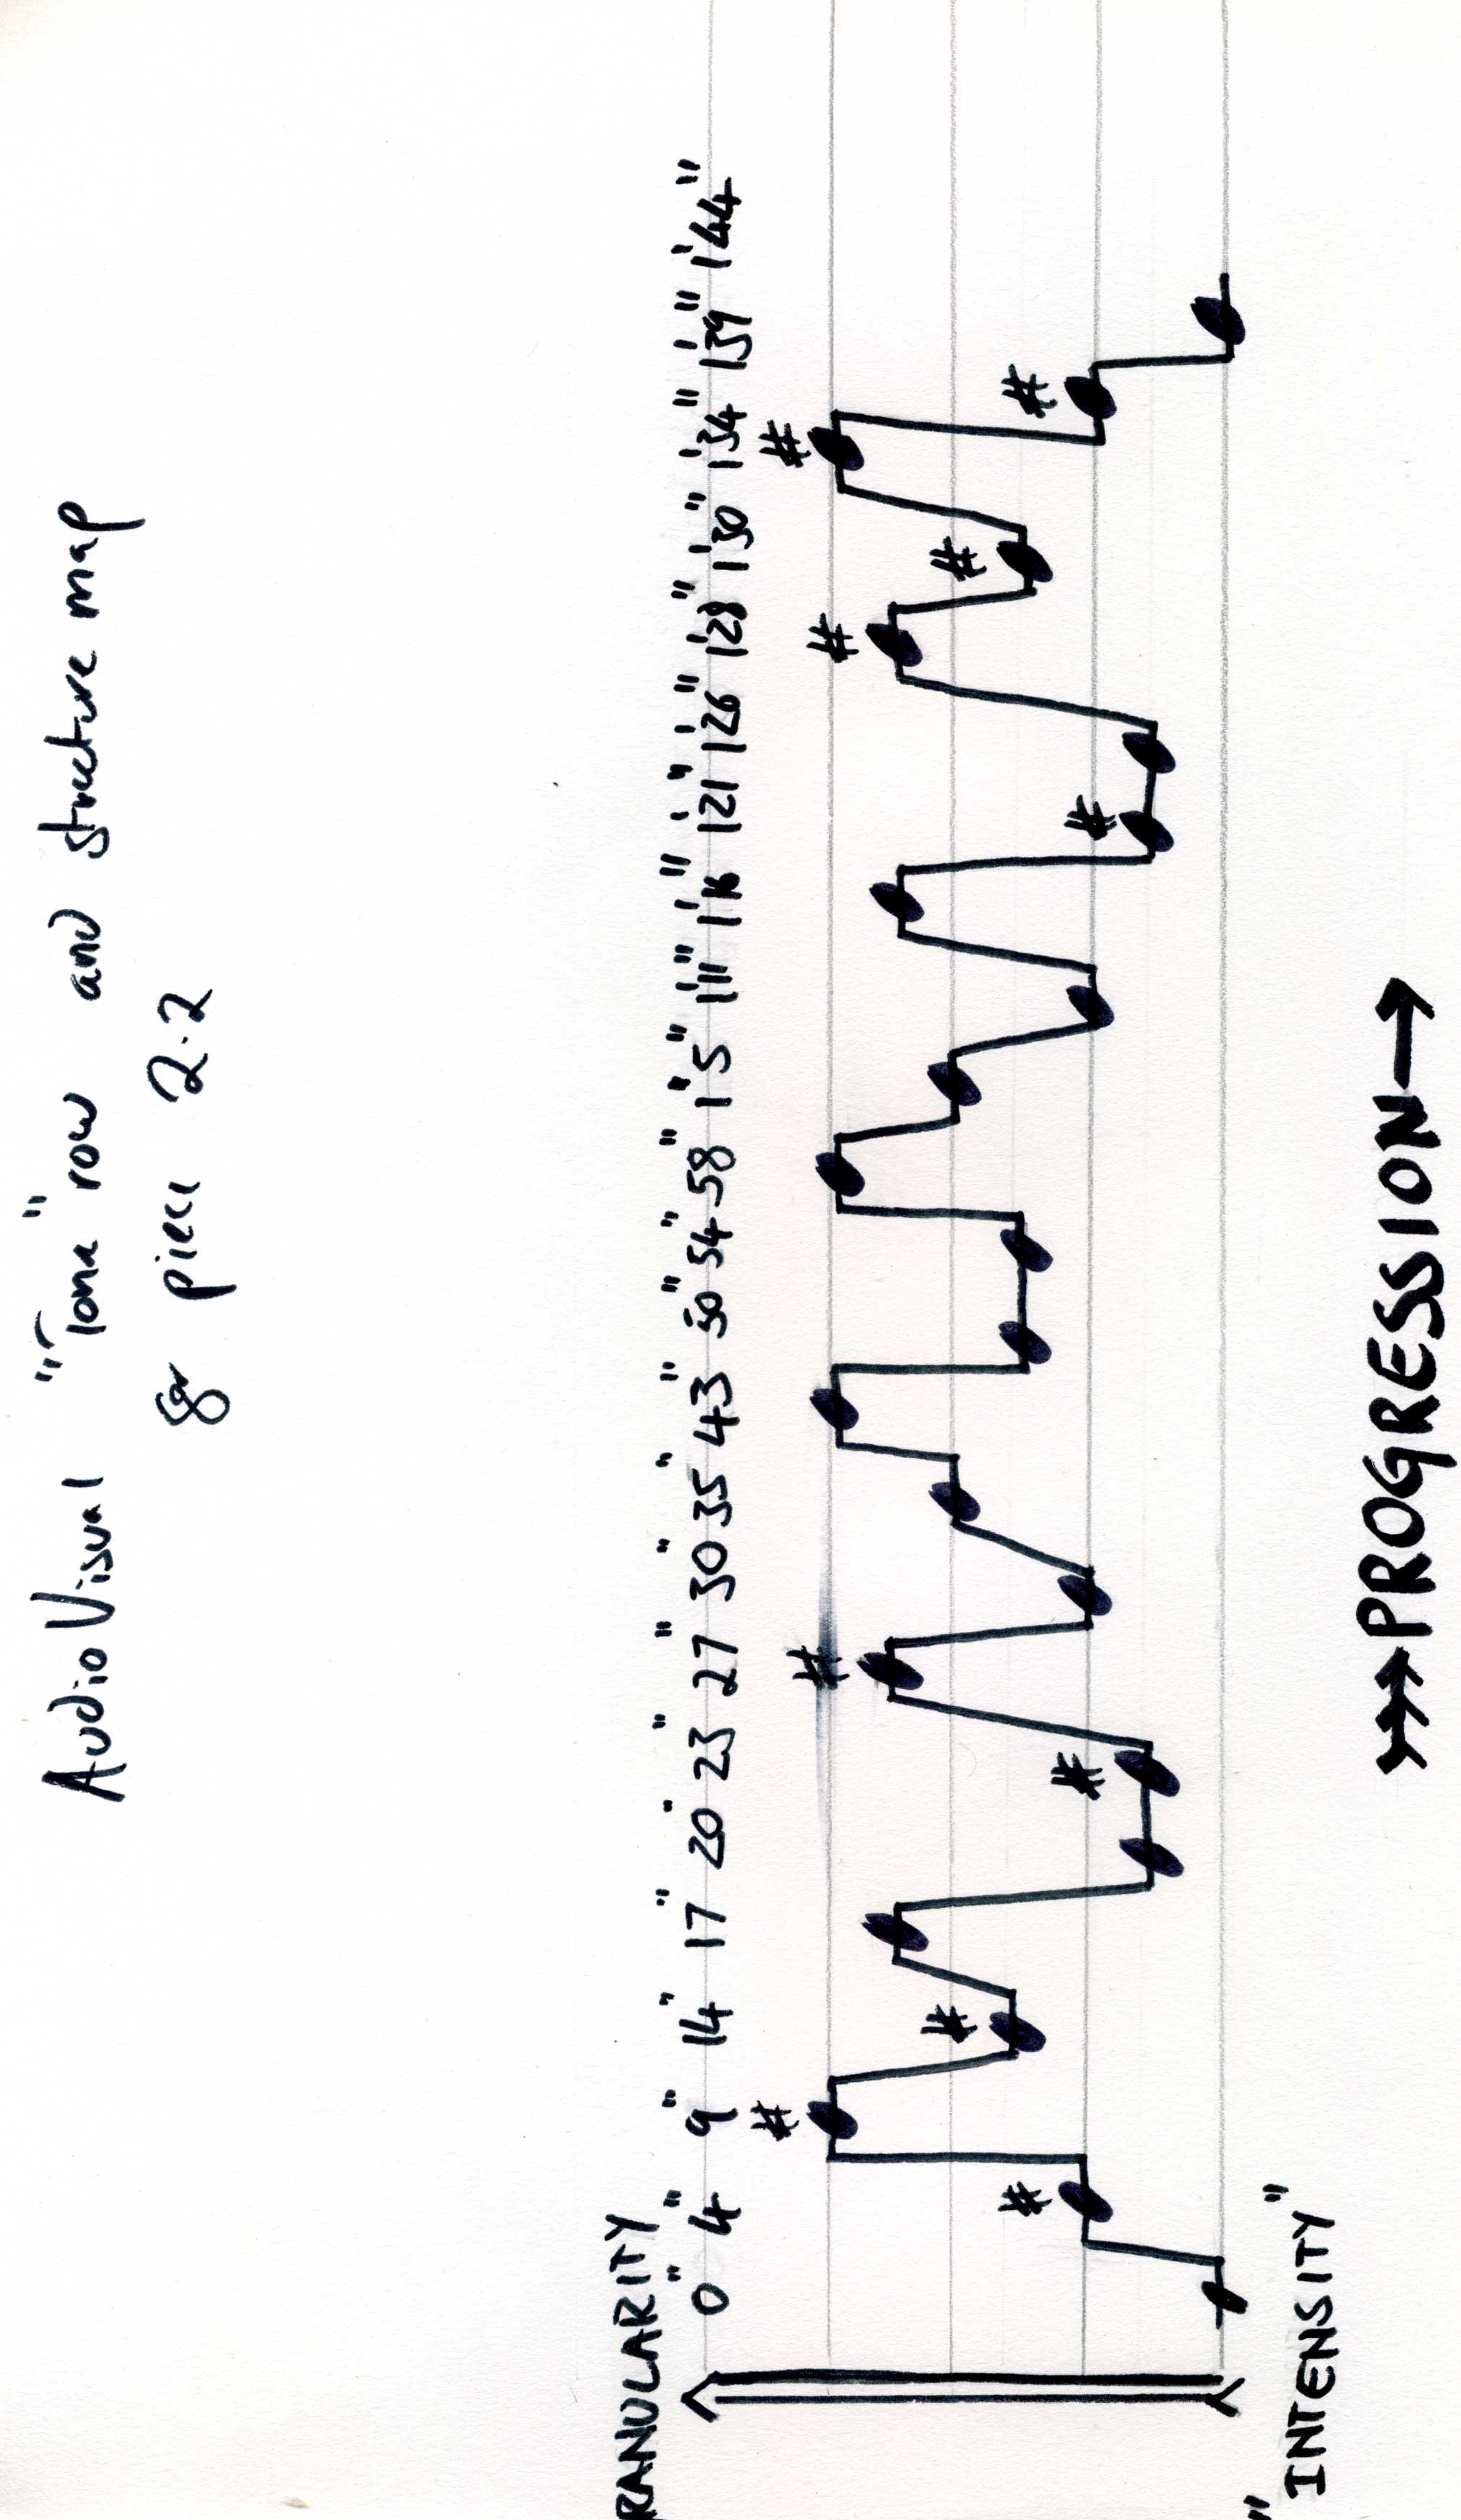 AudioVisual "Tone" row and structure map
for piece 2.2
RANULARITY
0" 4" 9" 14" 17" 20" 23" 27" 30" 35" 43" 50" 54" 58" 1'5" 1'11" 1'16" 1'21" 1'26" 1'28" 1'30" 1'34" 1'39" 1'44"
# # # # # # # # # #
"INTENSITY"
>>>PROGRESSION→